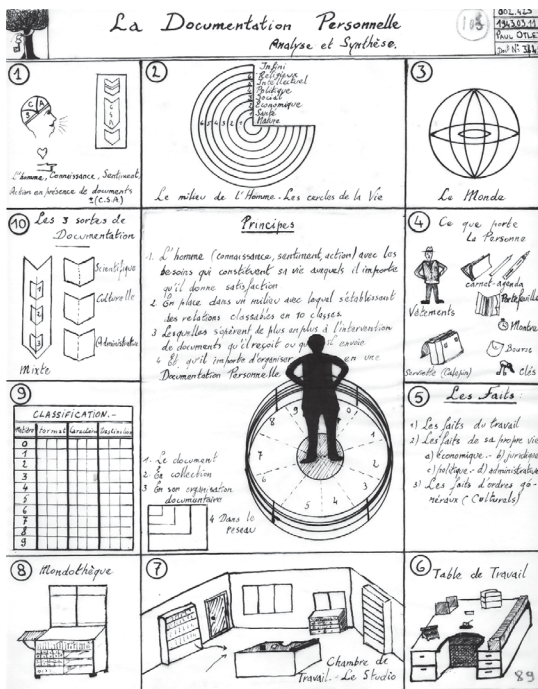 La Documentation Personnelle
Analyse et Synthèse.
103
002.425
1943.03.11
PAUL OTLET
Dᵗ N° 344
1
C A
S
C
S
A
L'homme, Connaissance, Sentiment,
Action en présence de documents
(C.S.A)
2
Infini
Religieux
Intellectuel
Politique
Social
Economique
Santé
Nature
6 5 4 3 2 1
Le milieu de l'Homme - Les cercles de la Vie
3
Le Monde
10
Les 3 sortes de
Documentation
Scientifique
Culturelle
Administrative
1
2
3
Mixte
Principes
1. L'homme (connaissance, sentiment, action) avec les
besoins qui constituent sa vie auxquels il importe
qu'il donne satisfaction
2. En place dans un milieu avec lequel s'établissent
des relations classables en 10 classes.
3 Lesquelles s'opèrent de plus en plus à l'intervention
de documents qu'il reçoit ou qu'il envoie
4 Et qu'il importe d'organiser en une
Documentation Personnelle
4
Ce que porte
la Personne
Vêtements
carnet-agenda
Portefeuille
Montre
Bourse
Serviette (Calepin)
clés
9
CLASSIFICATION.-
Matière Format Caractère Destination
0
1
2
3
4
5
6
7
8
9
8 9 0 1 2 3 4 5 6 7
1. Le document
2. Sa collection
3 En son organisation
documentaire
4 Dans le
réseau
5
Les Faits:
1) Les faits du travail
2) Les faits de sa propre vie
a) économique.- b) juridique
c) politique.- d) administrative
3) Les faits d'ordres gé-
néraux (Culturels)
8
Mondothèque
7
Chambre de
Travail.- Le Studio
6
Table de Travail
89